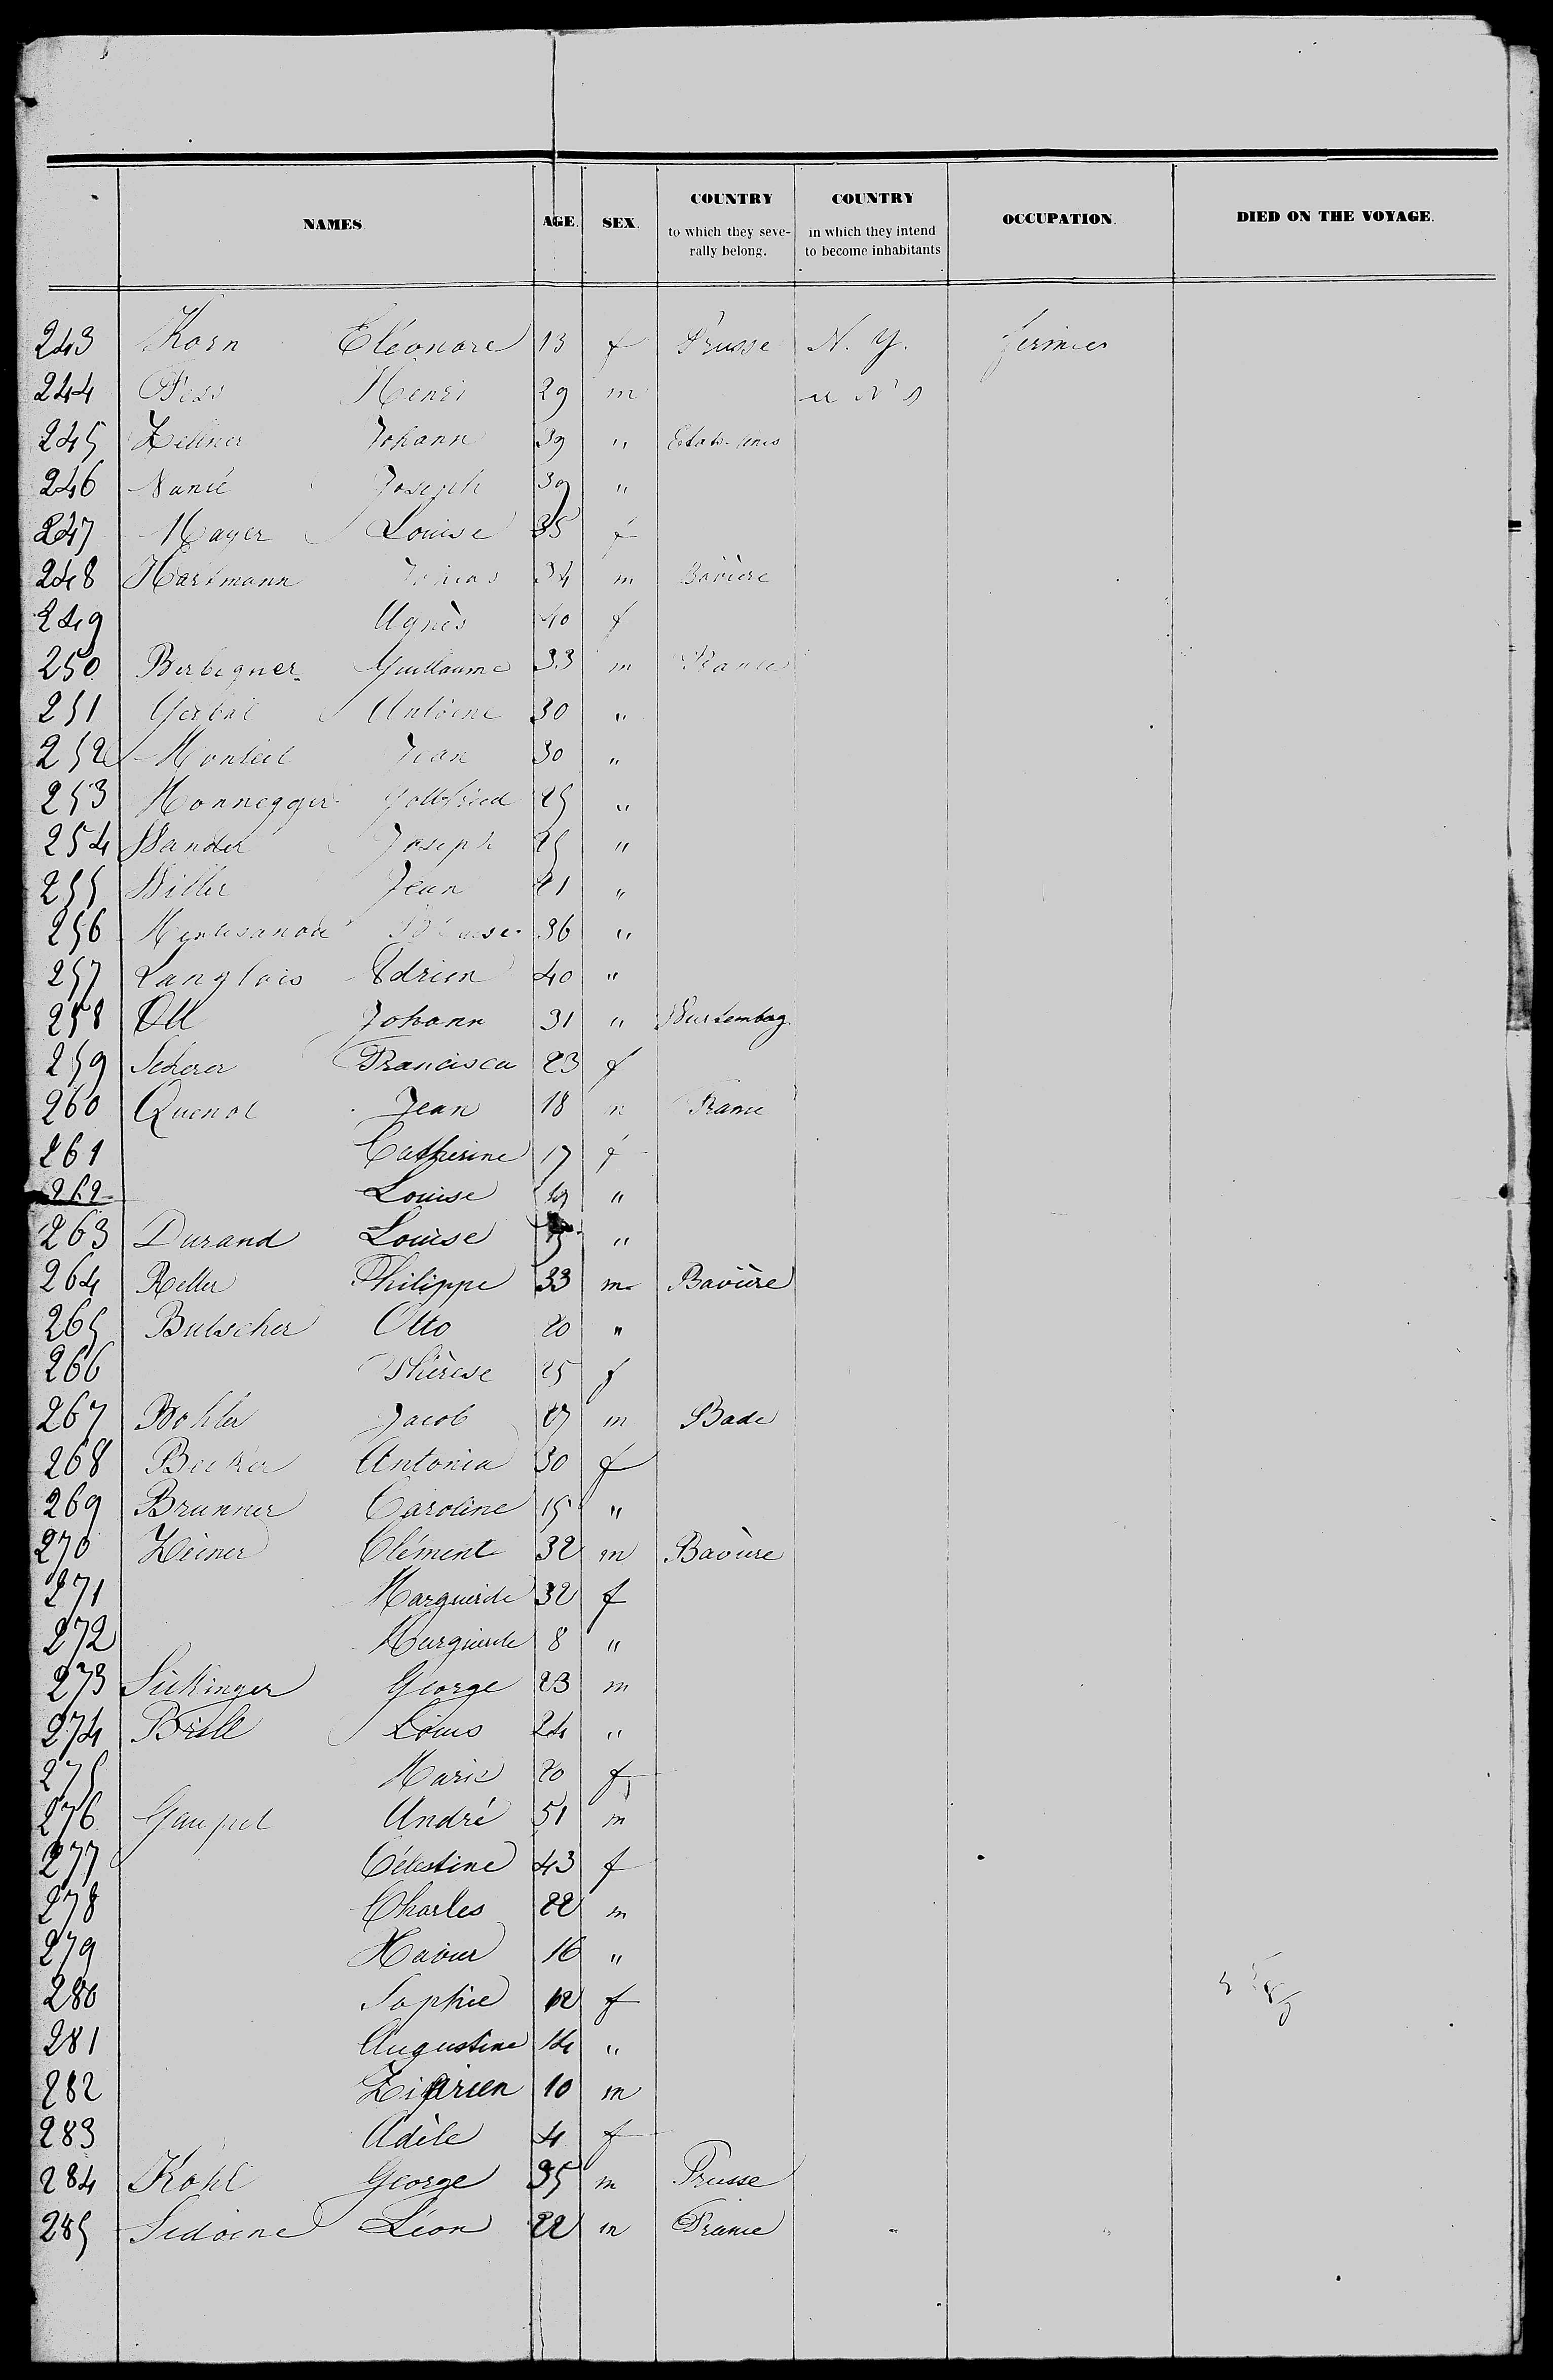 NAMES AGE. SEX. COUNTRY to which they seve-rally belong. COUNTRY in which they intend to become inhabitants OCCUPATION. DIED ON THE VOYAGE.
243 Korn Eléonore 13 f Prusse N. Y. fermier
244 Fess Henri 29 m
245 Zellner Johann 39 " Etats-Unis
246 Joseph 39 "
247 Mayer Louise 35 f
248 Hartmann 34 m Bavière
249 Agnès 40 f
250 Berbeguer Guillaume 33 m France
251 Gerbal Antoine 30 "
252 Monteil Jean 30 "
253 Honnegger Gottfried 25 "
254 Wander Joseph 25 "
255 Willer Jean 21 "
256 36 "
257 Langlois Adrien 40 "
258 Ott Johann 31 " Wurtemberg
259 Scherer Francisca 23 f
260 Quenot Jean 18 m France
261 Catherine 17 f
262 Louise "
263 Durand Louise "
264 Keller Philippe 33 m Bavière
265 Butscher Otto 20 "
266 Thérèse 25 f
267 Bohler Jacob 27 m Bade
268 Becker Antonia 30 f
269 Brunner Caroline 15 "
270 Zeiner Clément 32 m Bavière
271 Marguerite 32 f
272 Marguerite 8 "
273 Sickinger George 23 m
274 Brill Louis 24 "
275 Marie 20 f
276 Gaupel André 51 m
277 Célestine 43 f
278 Charles 22 m
279 Xavier 16 "
280 Sophie 12 f
281 Augustine 14 "
282 Ziprien 10 m
283 Adèle 4 f
284 Kohl George 35 m Prusse
285 Sidoine Léon 22 m France